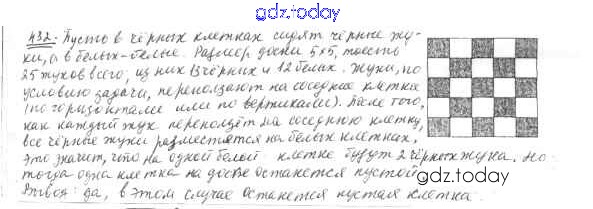 gdz.today
432. Пусть в чёрных клетках сидят чёрные жу-
ки, а в белых - белые. Размер доски 5х5, тоесть
25 жуков всего, из них 13 чёрных и 12 белых. Жуки, по
условию задачи, переползают на соседние клетки
(по горизонтали или по вертикали). После того,
как каждый жук переползёт на соседнюю клетку,
все чёрные жуки разместятся на белых клетках.
Это значит, что на одной белой клетке будут 2 чёрных жука. Но
тогда одна клетка на доске останется пустой
Ответ: да, в этом случае останется пустая клетка.
gdz.today